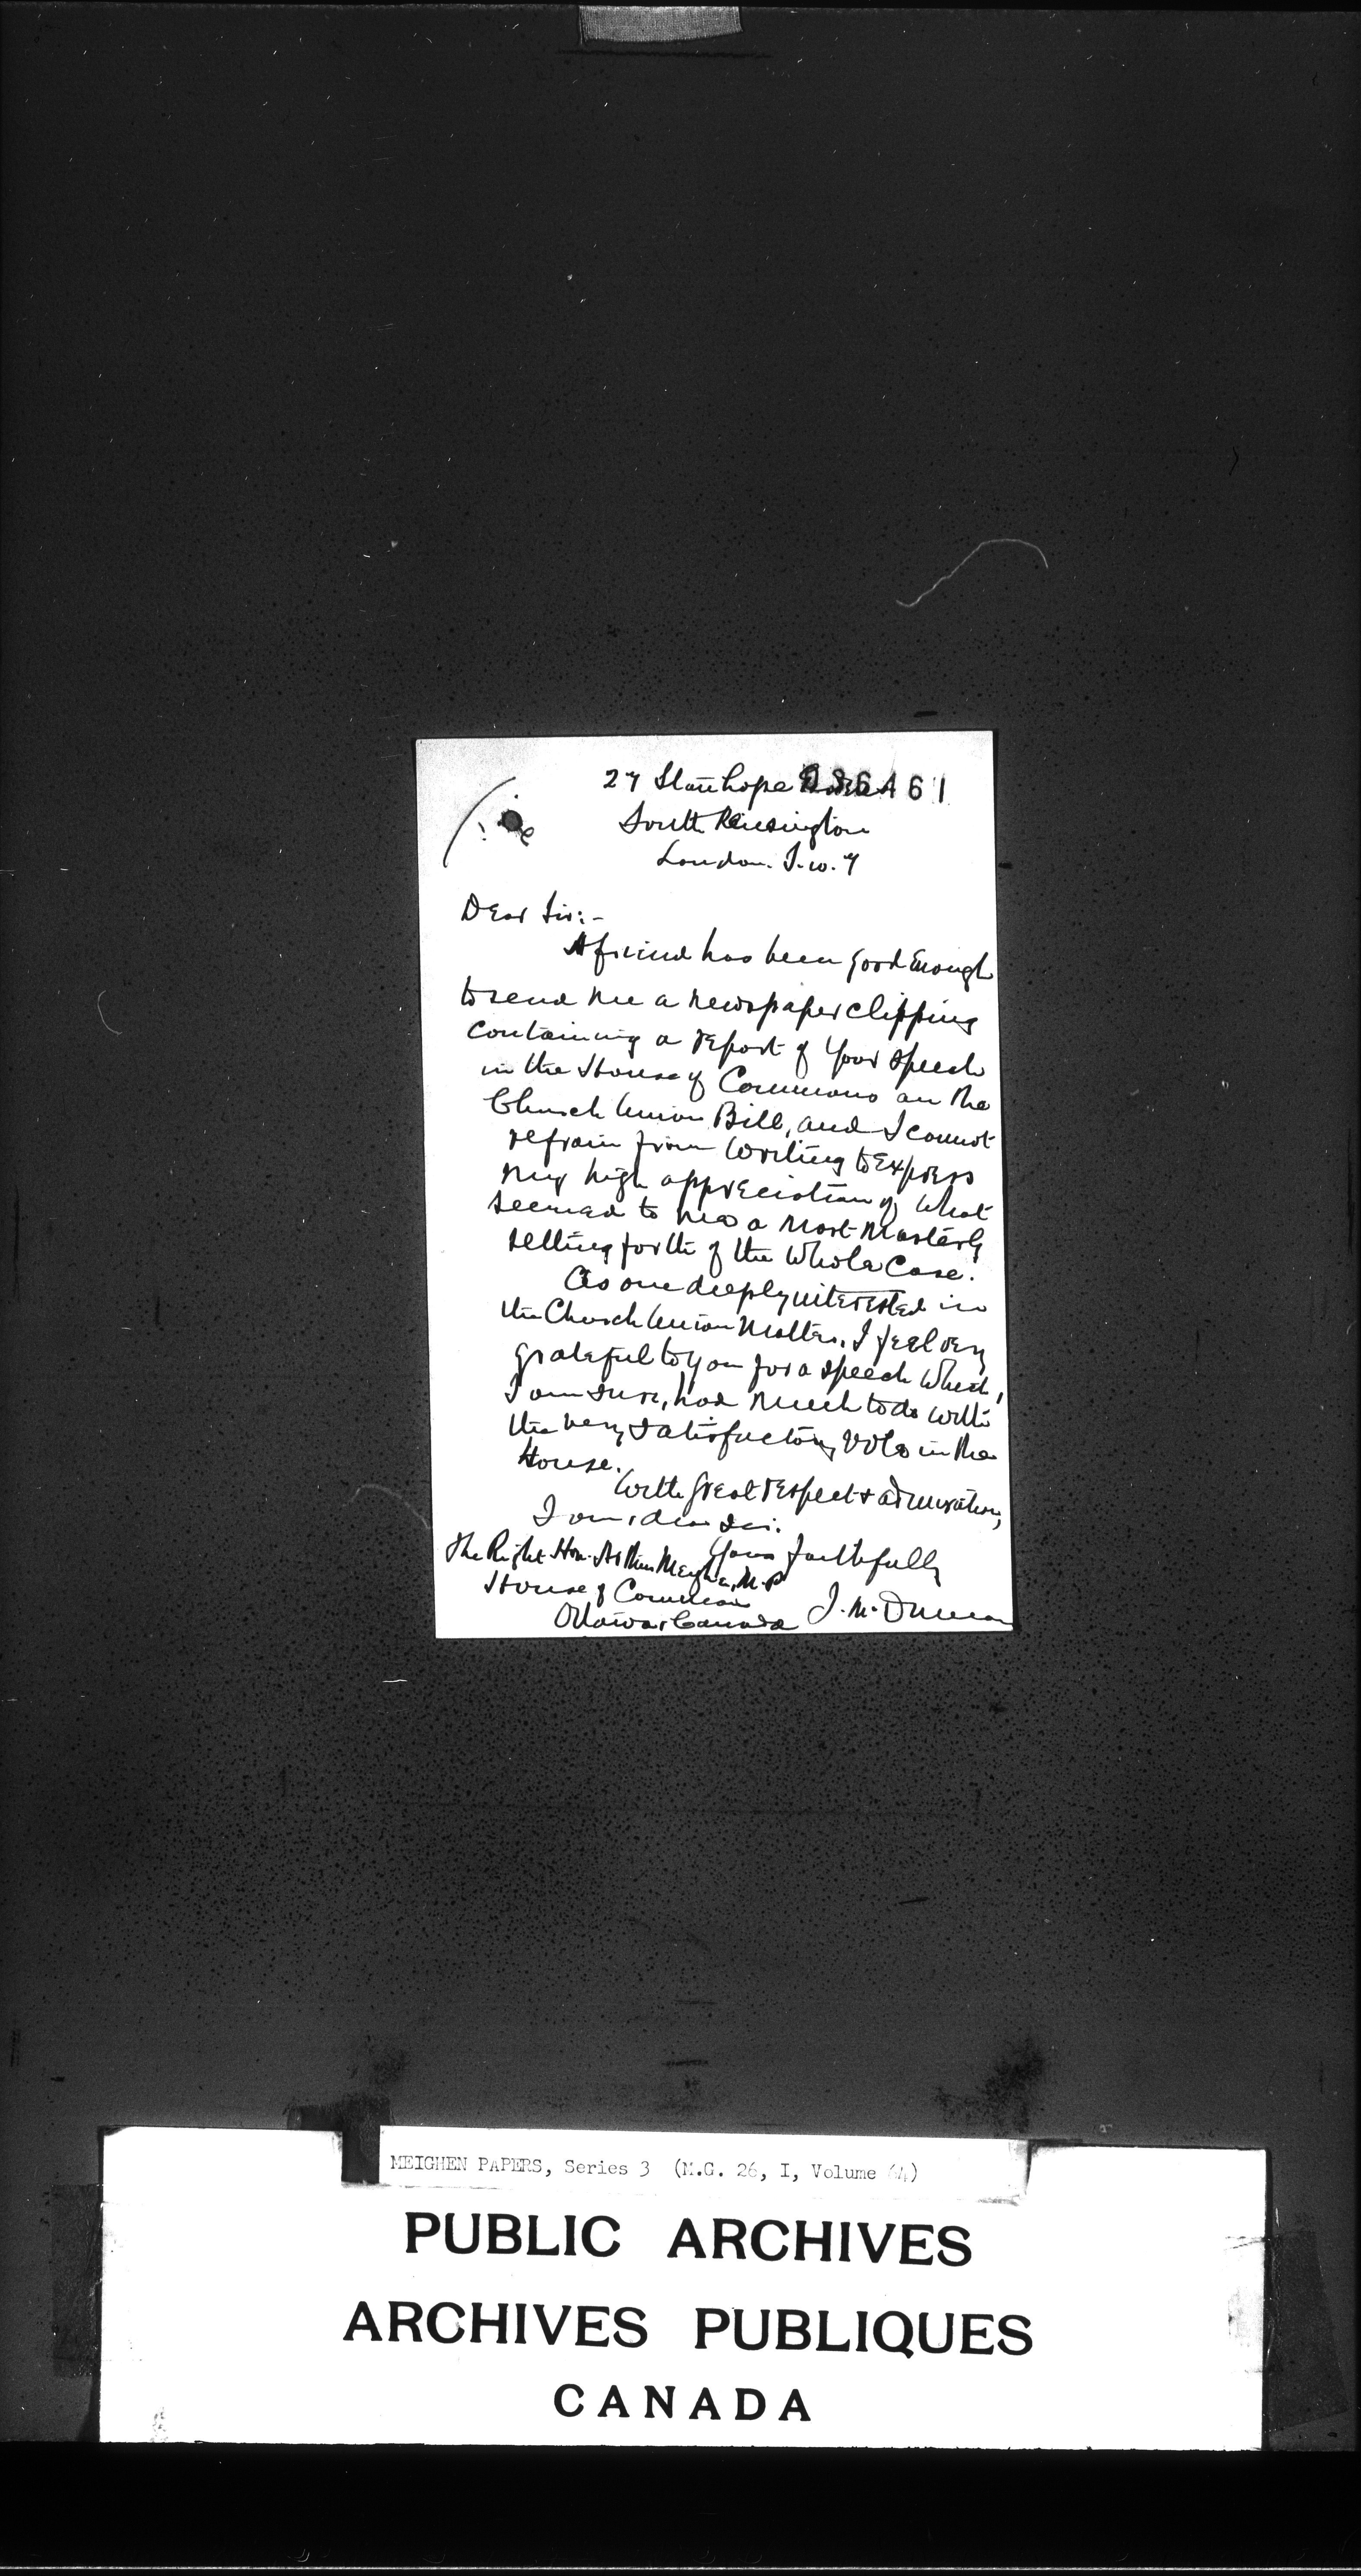 27 Stanhope Gardens 036461
South Kensington
London. S.W. 7
Dear Sir:-
A friend has been good enough
to send me a newspaper clipping
containing a report of your speech
in the House of Commons on the
Church Union Bill, and I cannot
refrain from writing to express
my high appreciation of what
seemed to me a most masterly
setting forth of the whole case.
As one deeply interested in
the Church Union matter, I feel very
grateful to you for a speech which,
I am sure, had much to do with
the very satisfactory vote in the
House.
With great respect & admiration,
I am, dear Sir.
Yours faithfully
The Right Hon. Arthur Meighen, M.P.
House of Commons
Ottawa, Canada J. M. Duncan
MEIGHEN PAPERS, Series 3 (M.G. 26, I, Volume 64)
PUBLIC ARCHIVES
ARCHIVES PUBLIQUES
CANADA